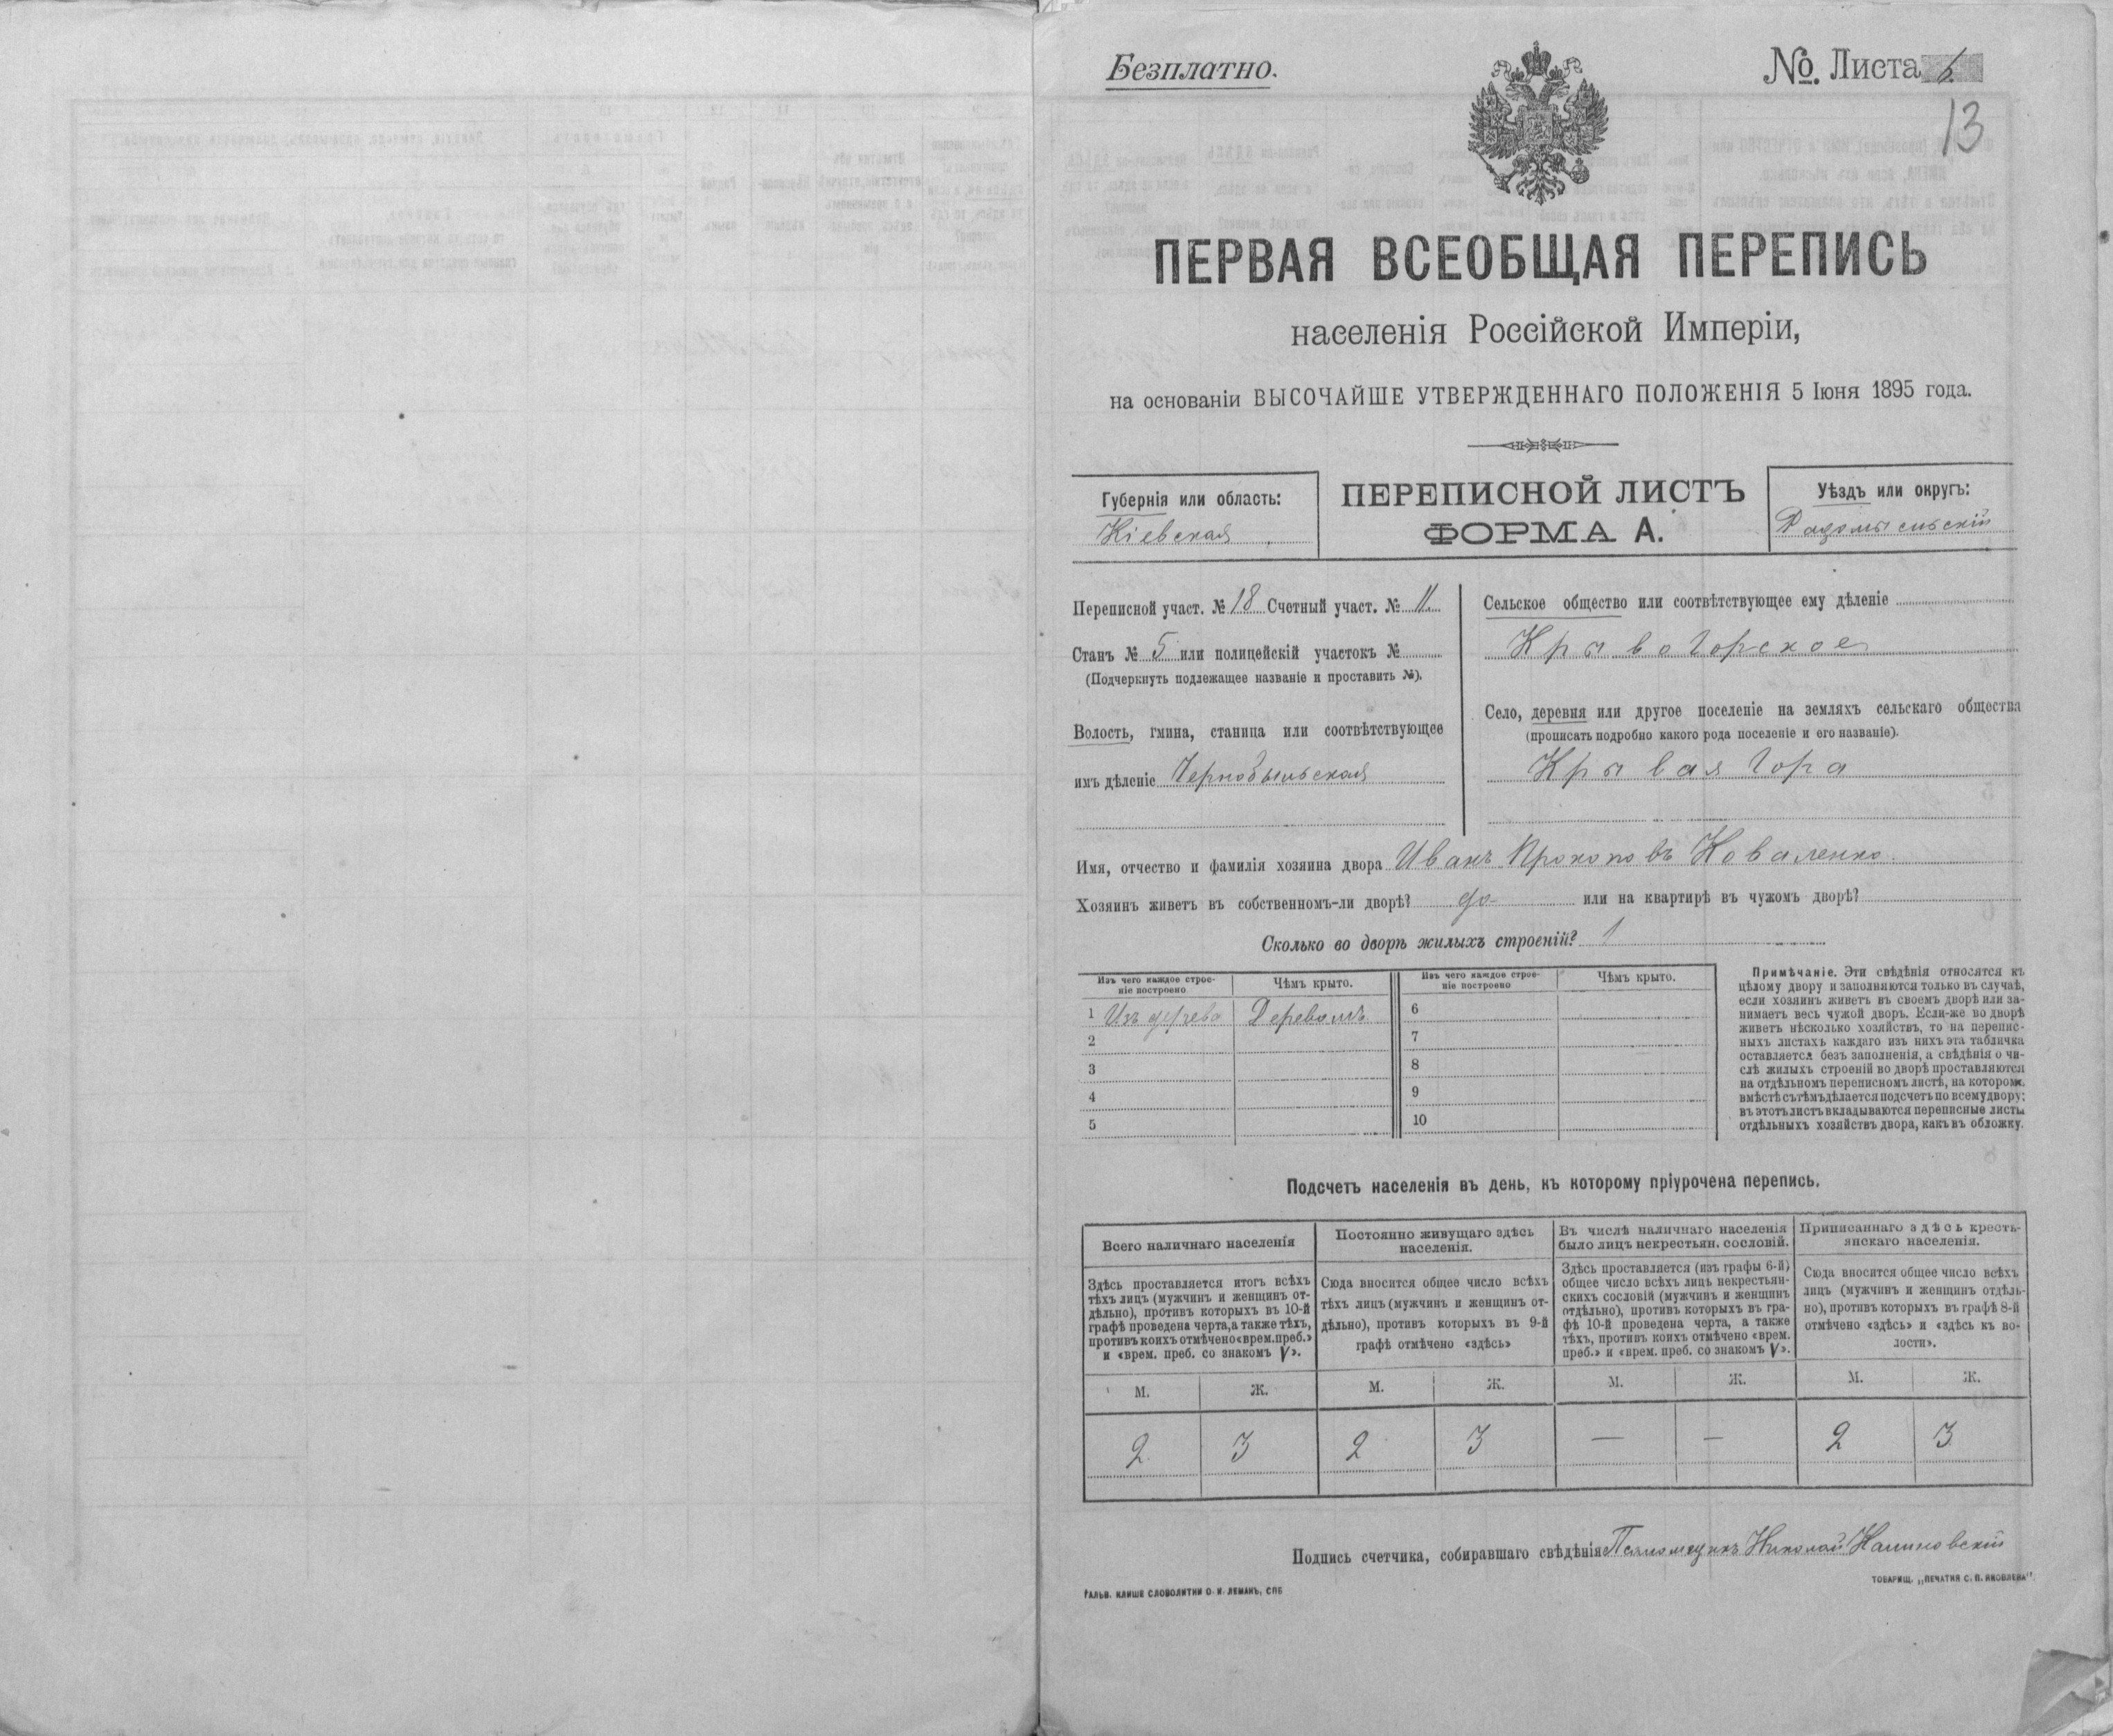 Безплатно.
№. Листа 6.
13
ПЕРВАЯ ВСЕОБЩАЯ ПЕРЕПИСЬ
населенія Россійской Имперіи,
на основаніи ВЫСОЧАЙШЕ УТВЕРЖДЕННАГО ПОЛОЖЕНІЯ 5 Іюня 1895 года.
Губернія или область:
Кіевская
ПЕРЕПИСНОЙ ЛИСТЪ
ФОРМА А.
Уѣздъ или округъ:
Радомысльскій
Переписной участ. № 18 Счетный участ. № 11
Станъ № 5 или полицейскій участокъ №
(Подчеркнуть подлежащее названіе и проставить №).
Волость, гмина, станица или соотвѣтствующее
имъ дѣленіе Чернобыльская
Сельское общество или соотвѣтствующее ему дѣленіе
Крывогорское
Село, деревня или другое поселеніе на земляхъ сельскаго общества
(прописать подробно какого рода поселеніе и его названіе).
Крывая Гора
Имя, отчество и фамилія хозяина двора Иванъ Прокоповъ Коваленко.
Хозяинъ живетъ въ собственномъ-ли дворѣ? да или на квартирѣ въ чужомъ дворѣ?
Сколько во дворѣ жилыхъ строеній? 1
Изъ чего каждое строе-
ніе построено
Чѣмъ крыто.
Изъ чего каждое строе-
ніе построено
Чѣмъ крыто.
1 Изъ дерева Деревомъ 6
2 7
3 8
4 9
5 10
Примѣчаніе. Эти свѣдѣнія относятся къ
цѣлому двору и заполняются только въ случаѣ,
если хозяинъ живетъ въ своемъ дворѣ или за-
нимаетъ весь чужой дворъ. Если-же во дворѣ
живетъ нѣсколько хозяйствъ, то на перепис-
ныхъ листахъ каждаго изъ нихъ эта табличка
оставляется безъ заполненія, а свѣдѣнія о чи-
слѣ жилыхъ строеній во дворѣ проставляются
на отдѣльномъ переписномъ листѣ, на которомъ
вмѣстѣ съ тѣмъ дѣлается подсчетъ по всему двору;
въ этотъ листъ вкладываются переписные листы
отдѣльныхъ хозяйствъ двора, какъ въ обложку.
Подсчетъ населенія въ день, къ которому пріурочена перепись.
Всего наличнаго населенія
Здѣсь проставляется итогъ всѣхъ
тѣхъ лицъ (мужчинъ и женщинъ от-
дѣльно), противъ которыхъ въ 10-й
графѣ проведена черта, а также тѣхъ,
противъ коихъ отмѣчено «врем. преб.»
и «врем. преб. со знакомъ V».
Постоянно живущаго здѣсь
населенія.
Сюда вносится общее число всѣхъ
тѣхъ лицъ (мужчинъ и женщинъ от-
дѣльно), противъ которыхъ въ 9-й
графѣ отмѣчено «здѣсь»
Въ числѣ наличнаго населенія
было лицъ некрестьян. сословій.
Здѣсь проставляется (изъ графы 6-й)
общее число всѣхъ лицъ некрестьян-
скихъ сословій (мужчинъ и женщинъ
отдѣльно), противъ которыхъ въ гра-
фѣ 10-й проведена черта, а также
тѣхъ, противъ коихъ отмѣчено «врем.
преб.» и «врем. преб. со знакомъ V».
Приписаннаго здѣсь кресть-
янскаго населенія.
Сюда вносится общее число всѣхъ
лицъ (мужчинъ и женщинъ отдѣль-
но), противъ которыхъ въ графѣ 8-й
отмѣчено «здѣсь» и «здѣсь къ во-
лости».
М. Ж. М. Ж. М. Ж. М. Ж.
2 3 2 3 — — 2 3
Подпись счетчика, собиравшаго свѣдѣнія Псаломщикъ Николай Калиновскій
ГАЛЬВ. КЛИШЕ СЛОВОЛИТНИ О. И. ЛЕМАНЪ, СПБ
ТОВАРИЩ. „ПЕЧАТНЯ С. П. ЯКОВЛЕВА“.